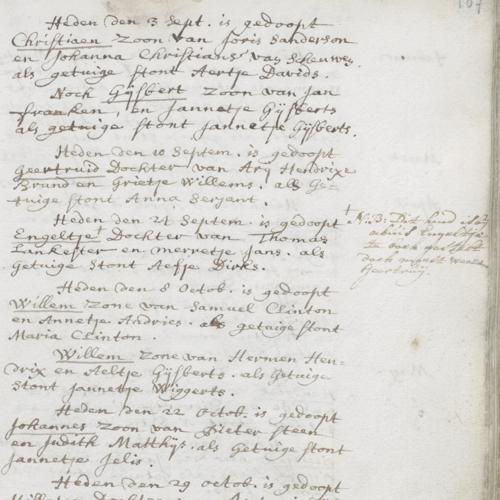 167
Heden den 3 Sept. is gedoopt
Christiaen zoon van Joris Sanderson
en Johanna Christians van Schouwen,
als getuige stont Aertje Davids.
Noch Gijsbert zoon van Jan
franken, en Jannetje Gijsberts
als getuige stont Jannetje Gijsberts.
Heden den 10 Septem. is gedoopt
Geertruid Dochter van Arij Hendrixe
Brund en Grietje Willems. als Ge=
tuige stont Anna Serjant.
Heden den 24 Septem. is gedoopt
Engeltje† Dochter van Thomas
Lankester en merretje Jans. als
getuige stont Aefje Dirks.
† N.B. Dit kind is
abusif Engeltje
te boek gestelt
doch moest wesen
Geertruij.
Heden den 8 Octob. is gedoopt
Willem zone van Samuel Clinton
en Annetje Andries. als getuige stont
Maria Clinton.
Willem zone van Hermen Hen=
drix en Aeltje Gijsberts. als getuige
stont Jannetje Wiggerts.
Heden den 22 octob. is gedoopt
Johannes zoon van Pieter Steen
en Judith Matthijs. als getuige stont
Jannetje Jelis.
Heden den 29 octob. is gedoopt
Dochter